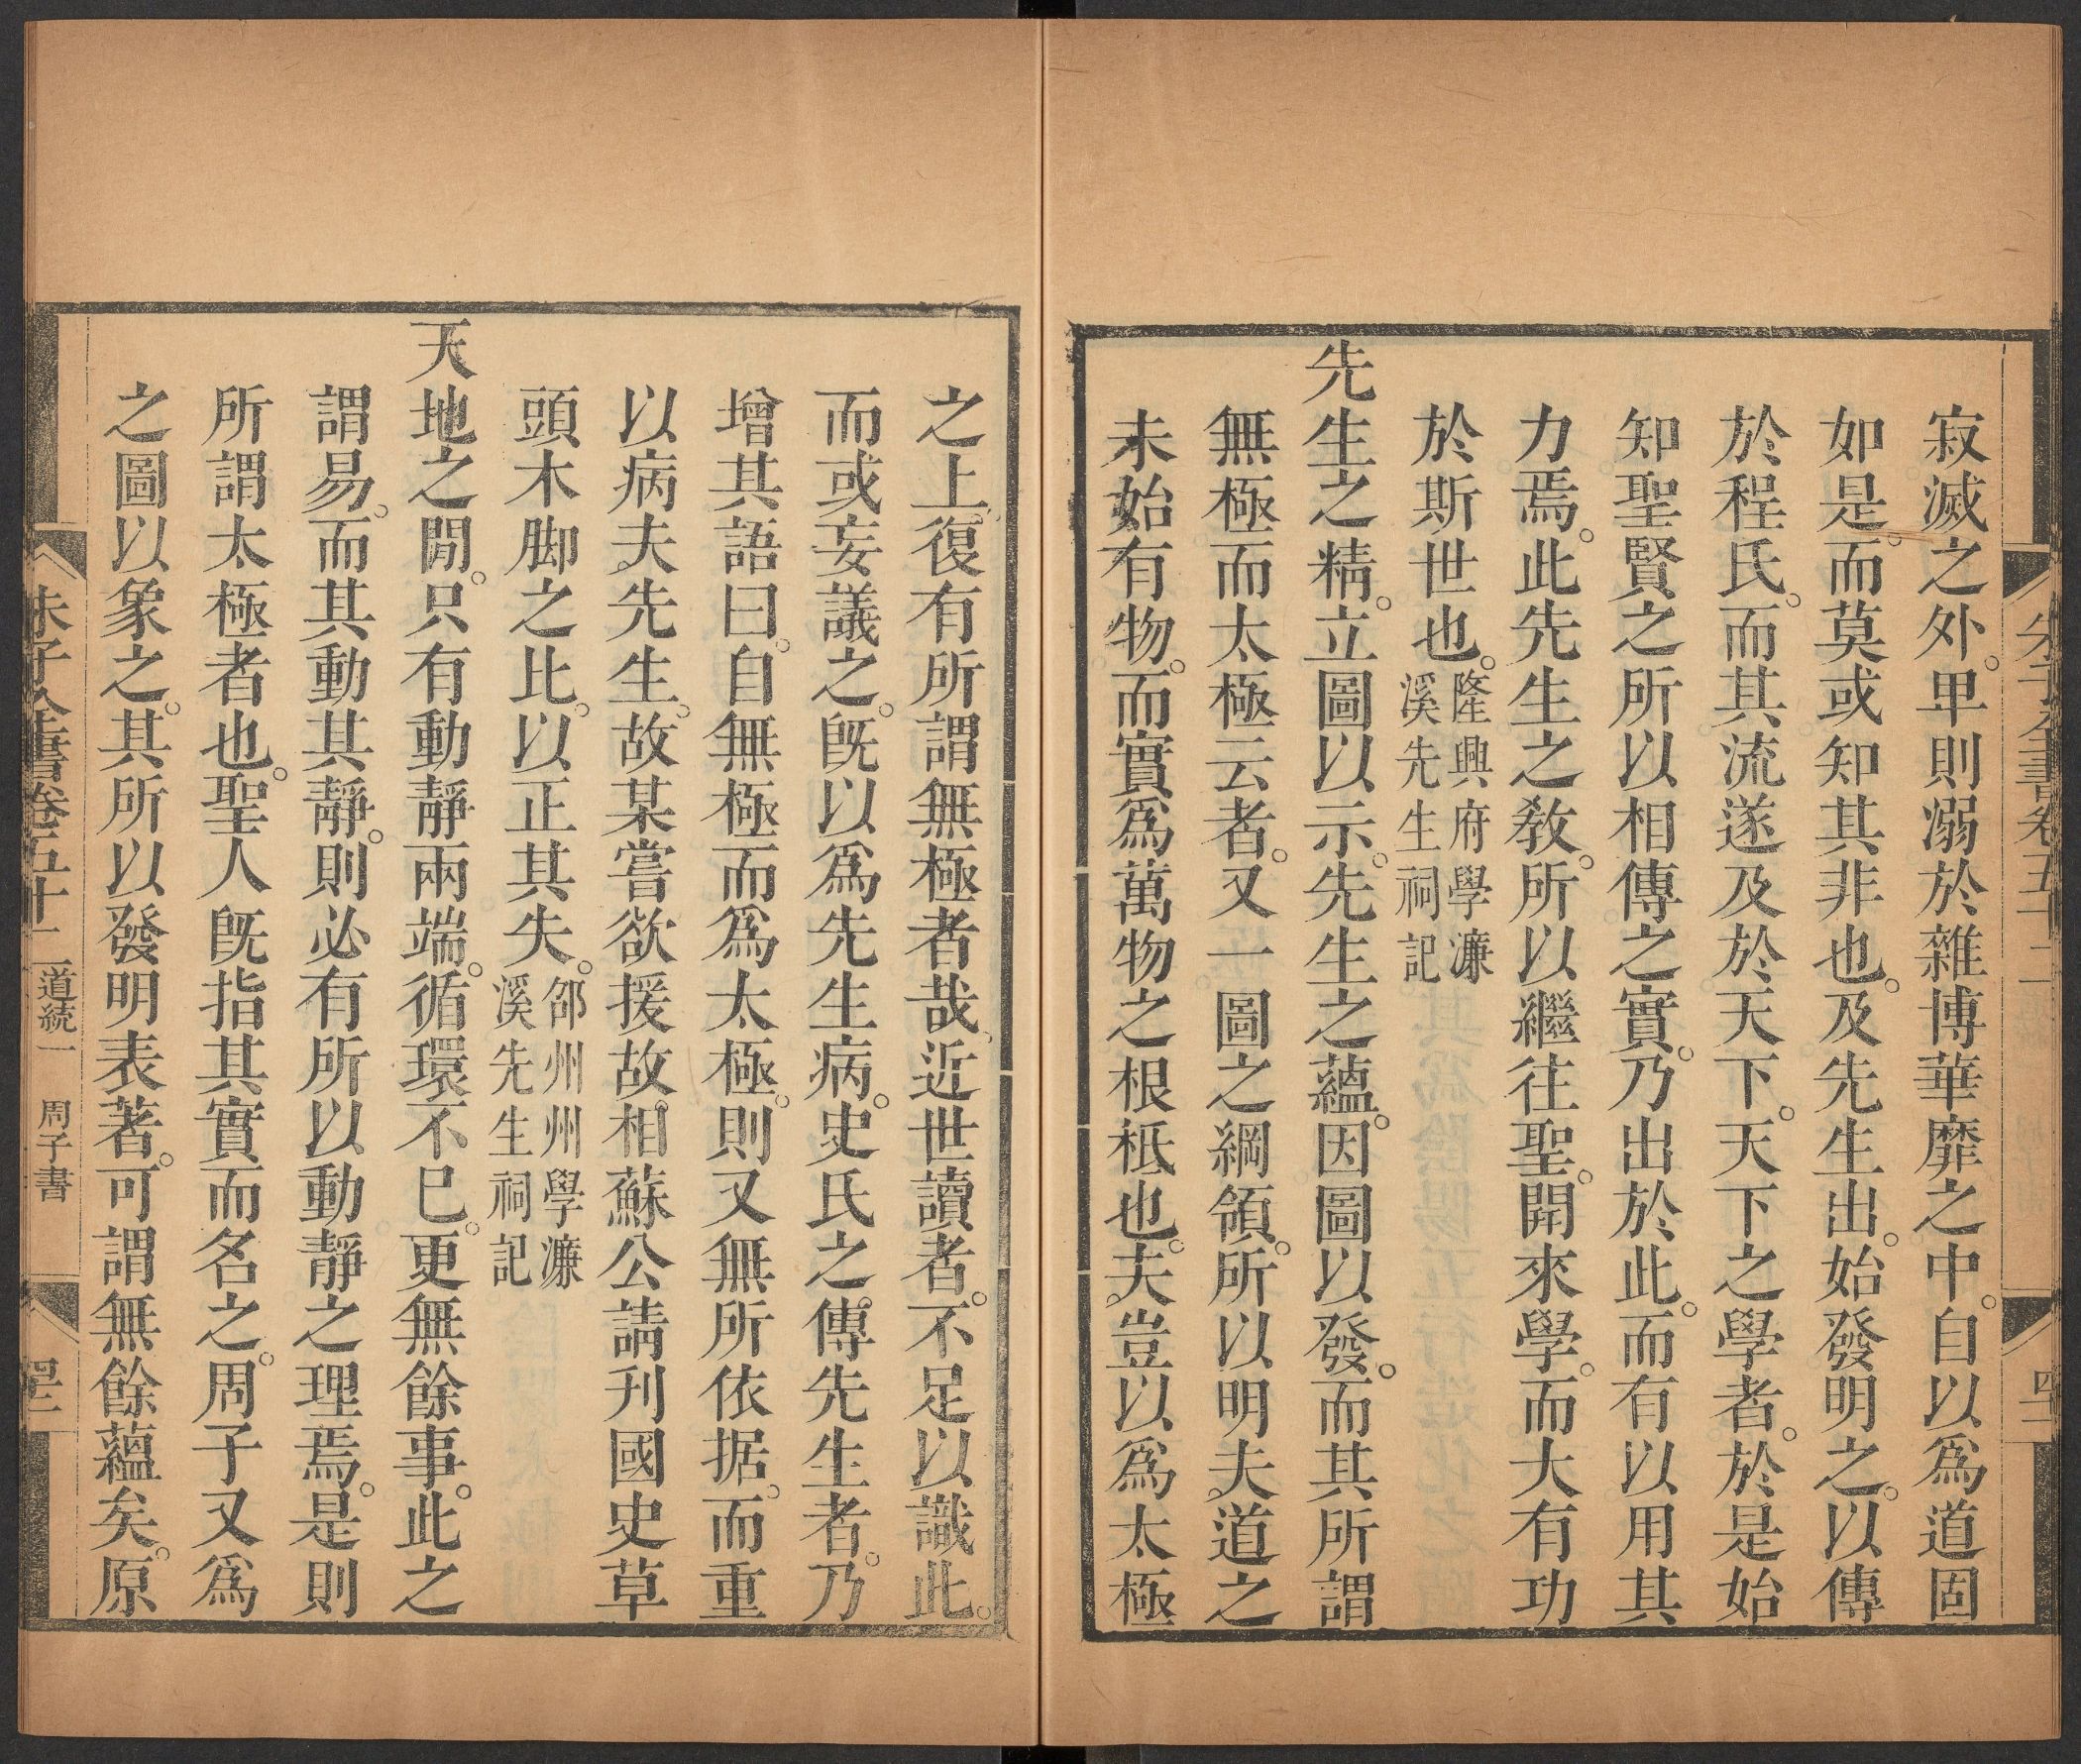 朱子全書卷五十二
四二
寂滅之外。卑則溺於雜博華靡之中。自以爲道固
如是。而莫或知其非也。及先生出。始發明之。以傳
於程氏。而其流遂及於天下。天下之學者。於是始
知聖賢之所以相傳之實。乃出於此。而有以用其
力焉。此先生之教。所以繼往聖。開來學。而大有功
於斯世也。隆興府學濂
溪先生祠記
先生之精。立圖以示。先生之蘊。因圖以發。而其所謂
無極而太極云者。又一圖之綱領。所以明夫道之
未始有物。而實爲萬物之根柢也。夫豈以爲太極
之上。復有所謂無極者哉。近世讀者。不足以識此。
而或妄議之。旣以爲先生病。史氏之傳先生者。乃
增其語曰。自無極而爲太極。則又無所依据。而重
以病夫先生。故某嘗欲援故相蘇公請刋國史草
頭木脚之比。以正其失。邵州州學濂
溪先生祠記
天地之閒。只有動靜兩端。循環不已。更無餘事。此之
謂易。而其動其靜。則必有所以動靜之理焉。是則
所謂太極者也。聖人旣指其實而名之。周子又爲
之圖以象之。其所以發明表著。可謂無餘蘊矣。原
朱子全書卷五十二 道統一 周子書
四二